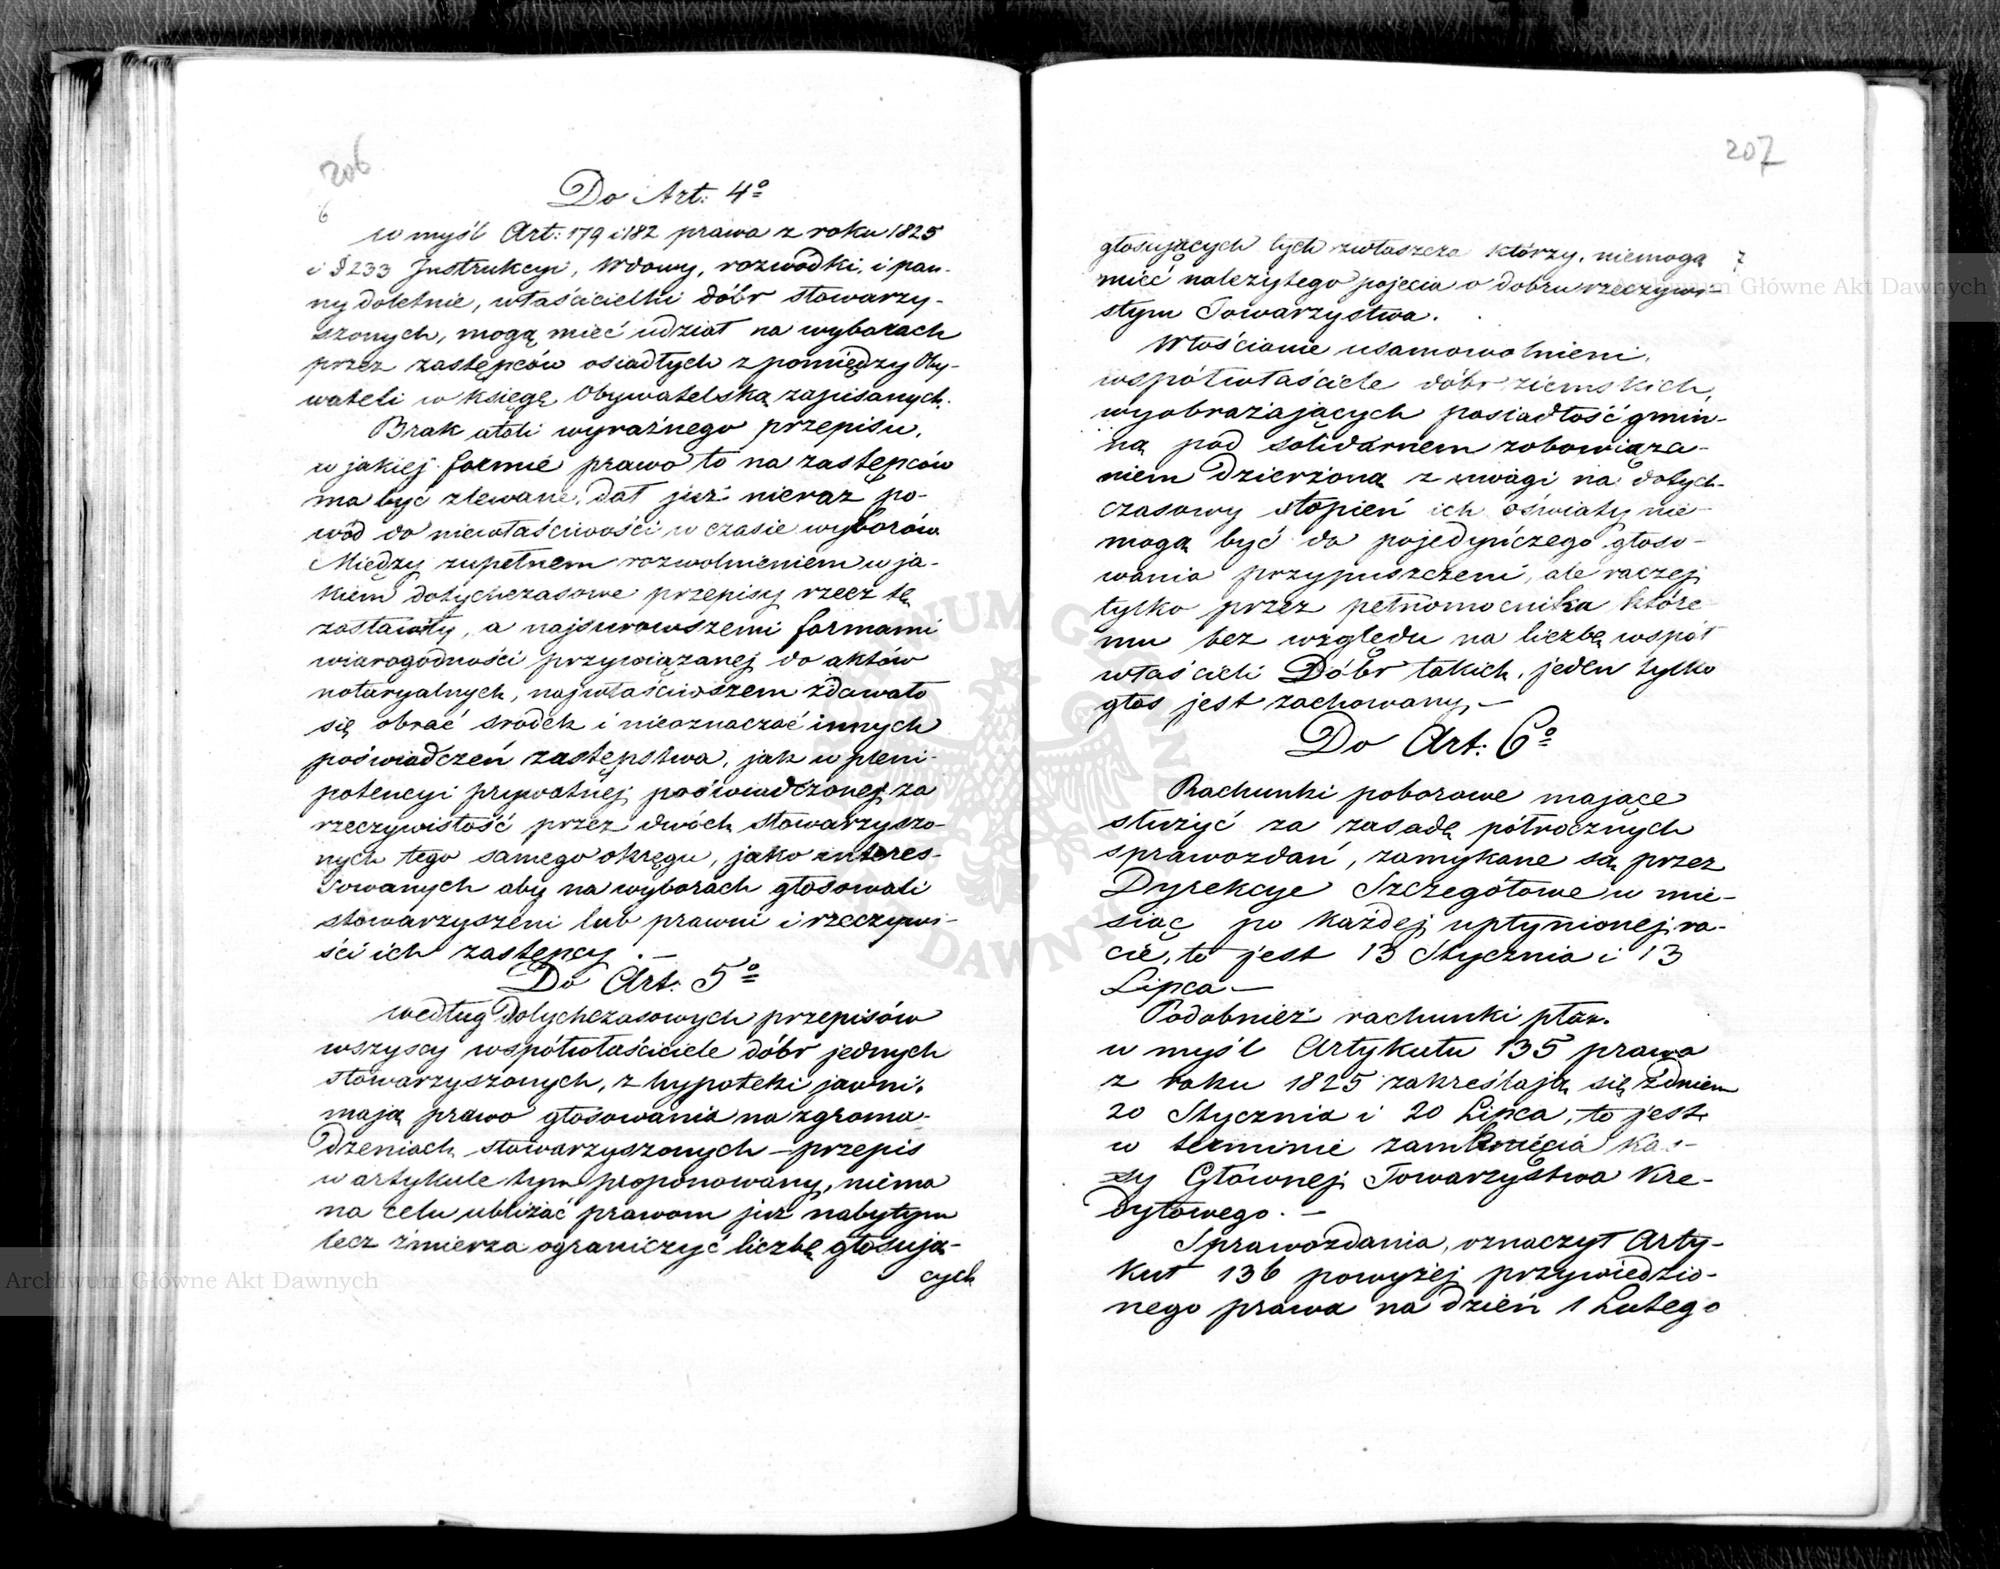 206
6
Do Art: 4º
w myśl Art: 179 i 182 prawa z roku 1825
i § 233 Instrukcyi, Wdowy, rozwódki, i pan-
ny doletnie, właścicielki dóbr stowarzy-
szonych, mogą mieć udział na wyborach
przez zastępców osiadłych z pomiędzy Oby-
wateli w księgę Obywatelską zapisanych.
Brak atoli wyraźnego przepisu,
w jakiej formie prawo to na zastępców
ma być zlewane, dał już nieraz po-
wód do niewłaściwości w czasie wyborów
Między zupełnem rozwolnieniem w ja-
kiem dotychczasowe przepisy rzecz tę
zostawiły, a najsurowszemi formami
wiarogodności przywiązanej do aktów
notaryalnych, najwłaściwszem zdawało
się obrać środek i nieoznaczać innych
poświadczeń zastępstwa, jak w pleni-
potencyi prywatnej poświadczonej za
rzeczywistość przez dwóch stowarzyszo-
nych tego samego okręgu, jako interes-
sowanych aby na wyborach głosowali
stowarzyszeni lub prawni i rzeczywi-
ści ich zastępcy. —
Do Art: 5º
według dotychczasowych przepisów
wszyscy współwłaściciele dóbr jednych
stowarzyszonych, z hypoteki jawni,
mają prawo głosowania na zgroma-
dzeniach stowarzyszonych – przepis
w artykule tym proponowany, niema
na celu ubliżać prawom już nabytym
lecz zmierza ograniczyć liczbę głosują-
cych
207
7
głosujących tych zwłaszcza którzy, niemogą
mieć należytego pojęcia o dobru rzeczywi-
stym Towarzystwa.
Włościanie usamowolnieni,
współwłaściciele dóbr ziemskich,
wyobrażających posiadłość gmin-
ną pod solidarnem zobowiąza-
niem dzierżoną z uwagi na dotych-
czasowy stopień ich oświaty nie-
mogą być do pojedyńczego głoso-
wania przypuszczeni, ale raczej
tylko przez pełnomocnika które
mu bez względu na liczbę współ
właścicieli Dóbr takich, jeden tylko
głos jest zachowany, —
Do Art: 6º
Rachunki poborowe mające
służyć za zasadę półrocznych
sprawozdań, zamykane są przez
Dyrekcye Szczegółowe w mie-
siąc po każdej upłynionej ra-
cie, to jest 13 Stycznia i 13
Lipca —
Podobnież rachunki płac.
w myśl Artykułu 135 prawa
z roku 1825 zakreślają się z dniem
20 Stycznia i 20 Lipca, to jest
w terminie zamknięcia Kas-
sy Głównej Towarzystwa Kre-
dytowego. —
Sprawozdania, oznaczył Arty-
kuł 136 powyżej przywiedzio-
nego prawa na dzień 1 Lutego
Archiwum Główne Akt Dawnych
Archiwum Główne Akt Dawnych